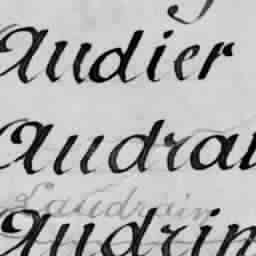 Audier
Audrai
Laudrain
Audrin